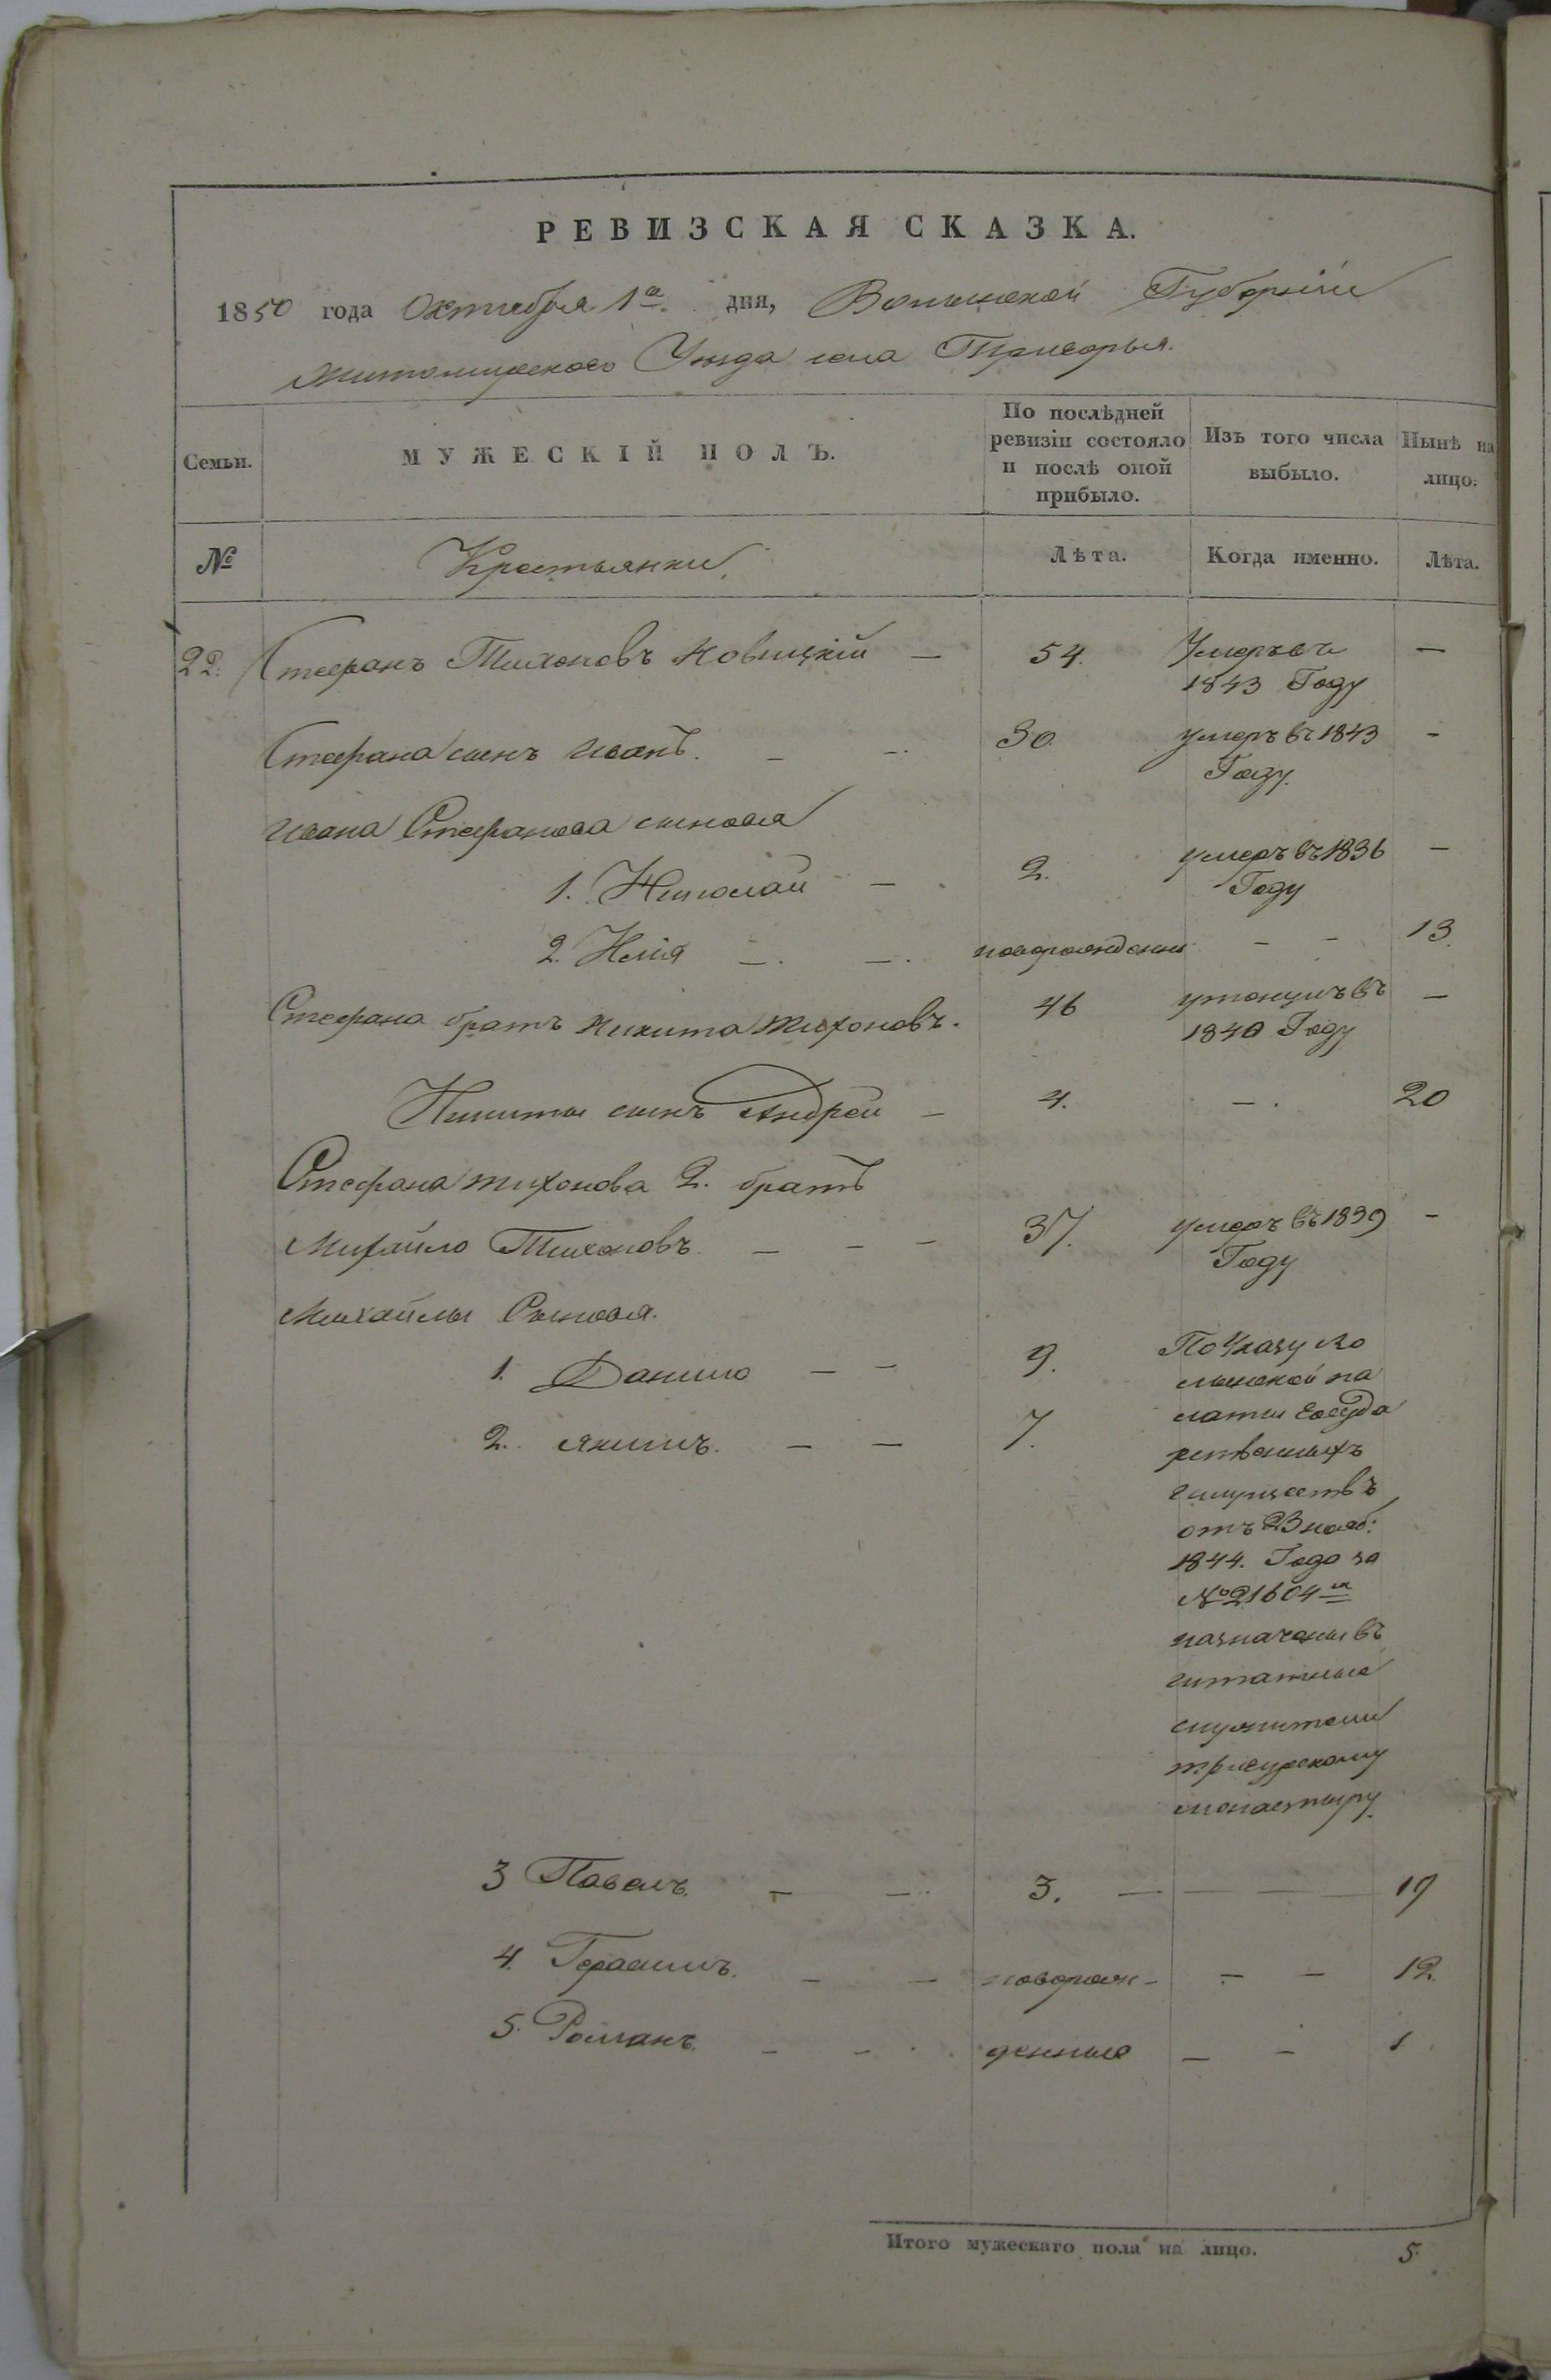 РЕВИЗСКАЯ СКАЗКА.
1850 года Октября 1го дня, Волынской Губерніи
Житомирского Уезда села Тригорья.
Семьи. МУЖЕСКІЙ ПОЛЪ. По послѣдней ревизіи состояло и послѣ оной прибыло. Изъ того числа выбыло. Нынѣ на лицо.
№ Крестьянки Лѣта. Когда именно. Лѣта.
22. Стефанъ Тихоновъ Новицкій — 54. Умеръ въ —
1843 Году
Стефана сынъ Иванъ. — — 30. умеръ въ 1843 —
Году.
Ивана Стефанова сыновя
1. Николай — 2. умеръ въ 1836 —
Году
2. Илія — — новорожденны — — 13.
Стефана братъ Никита Тихоновъ. 46 утонулъ въ —
1840 Году
Никиты сынъ Андрей — 4. — 20
Стефана Тихонова 2. братъ
Михайло Тихоновъ. — — — 37. умеръ въ 1839 —
Году
Михайлы Сыновя.
1. Данило — — 9. По Указу Во
лынской па
2. Якимъ. — — 7. латы Государ
ственныхъ
имуществъ
отъ 23 нояб:
1844. Года за
№ 21604м
назначены въ
штатные
служители
тригурскому
монастыру.
3 Павелъ. — — 3. — — — 19
4. Герасимъ. — — новорож- — — 12.
5. Романъ. — — денные — — 1
Итого мужескаго пола на лицо. 5.